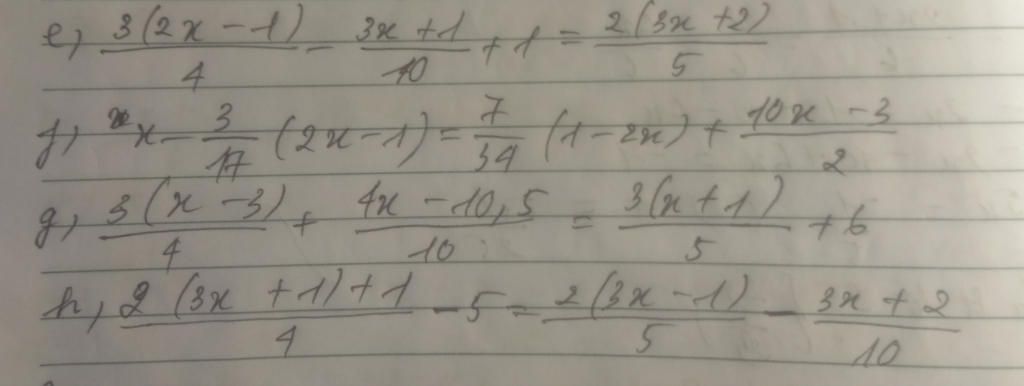 e, 3(2x - 1)/4 - 3x + 1/10 + 1 = 2(3x + 2)/5
f, x - 3/17 (2x - 1) = 7/34 (1 - 2x) + 10x - 3/2
g, 3(x - 3)/4 + 4x - 10,5/10 = 3(x + 1)/5 + 6
h, 2(3x + 1) + 1/4 - 5 = 2(3x - 1)/5 - 3x + 2/10